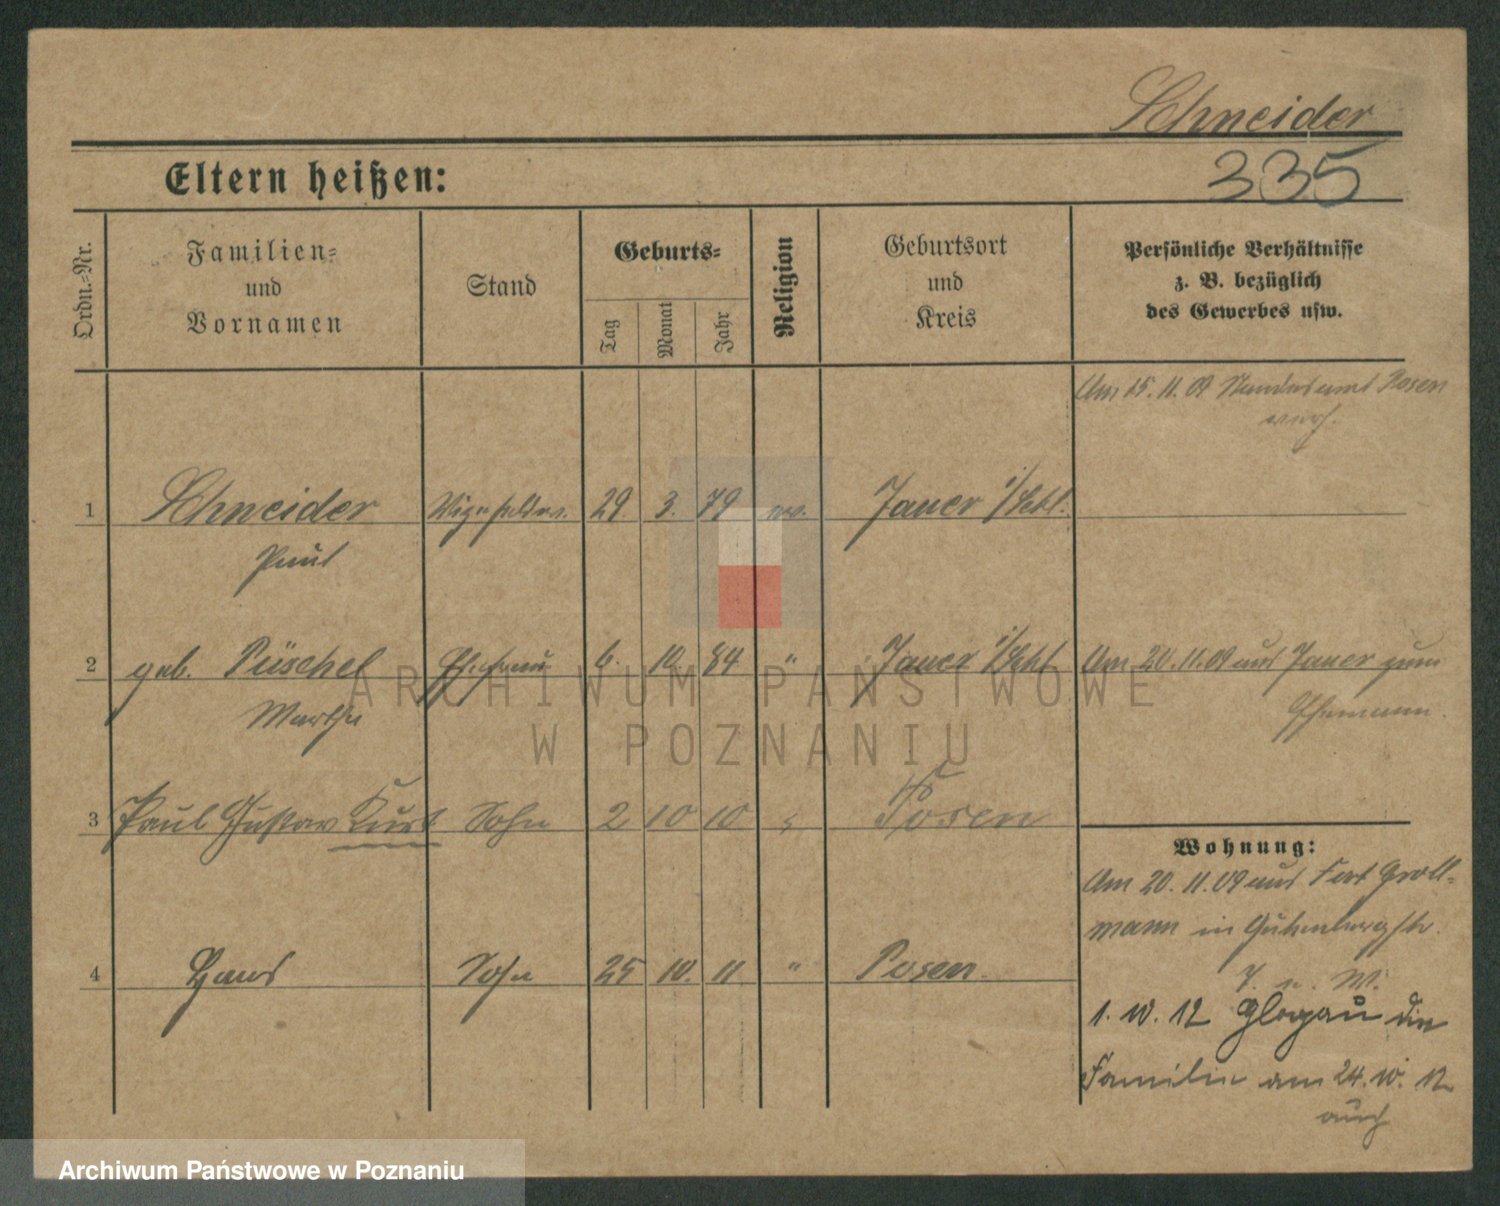 Schneider
335
Eltern heißen:
Ordn.-Nr.
Familien-
und
Vornamen
Stand
Geburts-
Tag
Monat
Jahr
Religion
Geburtsort
und
Kreis
Persönliche Verhältnisse
z. B. bezüglich
des Gewerbes usw.
Am 15. 11. 09 Standesamt Posen
1 Schneider Vizefeldw. 29. 3. 79 ev. Jauer i/Schl.
Paul
2 geb. Püschel Ehefrau 6. 10. 84 " Jauer i/Schl Am 20. 11. 09 aus Jauer zum
Martha Ehemann.
3 Paul Gustav Kurt Sohn 2 10 10 Posen
Wohnung:
Am 20. 11. 09 aus Fort Groll-
mann in Gutenbergstr.
4 Hans Sohn 25 10. 11 " Posen.
1. 10. 12 Glogau die
Familie am 24. 10. 12
auch
ARCHIWUM PAŃSTWOWE
W POZNANIU
Archiwum Państwowe w Poznaniu